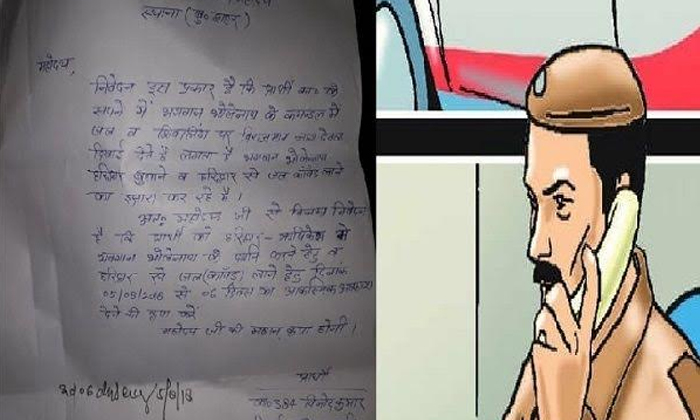 स्याना (बु० शहर)
महोदय,
निवेदन इस प्रकार है कि प्रार्थी का० के
सपने में भगवान भोलेनाथ के कमण्डल में
जल व शिवलिंग पर विराजमान नाग देवता
दिखाई देते हैं लगता है भगवान भोलेनाथ
हरिद्वार बुलाने व हरिद्वार से जल काँवड़ लाने
का इशारा कर रहे हैं।
अतः महोदय जी से विनम्र निवेदन
है कि प्रार्थी को हरिद्वार - ऋषिकेश से
भगवान भोलेनाथ के दर्शन करने हेतु व
हरिद्वार से जल (काँवड़) लाने हेतु दिनांक
से 06 दिवस का आकस्मिक अवकाश
देने की कृपा करें
महोदय जी की महान कृपा होगी।
प्रार्थी
का० 384 विनोद कुमार